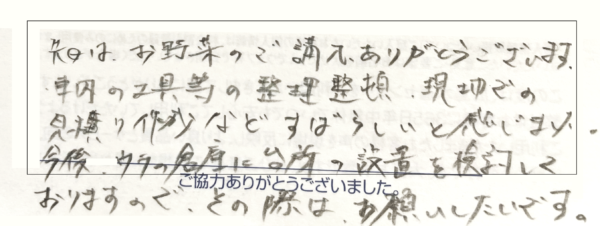 先日は、お野菜のご購入ありがとうございます。
車内の工具等の整理整頓、現地での
見積り作成などすばらしいと感じます。
今後、ウラの倉庫に台所の設置を検討して
ご協力ありがとうございました。
おりますので、その際は、お願いしたいです。